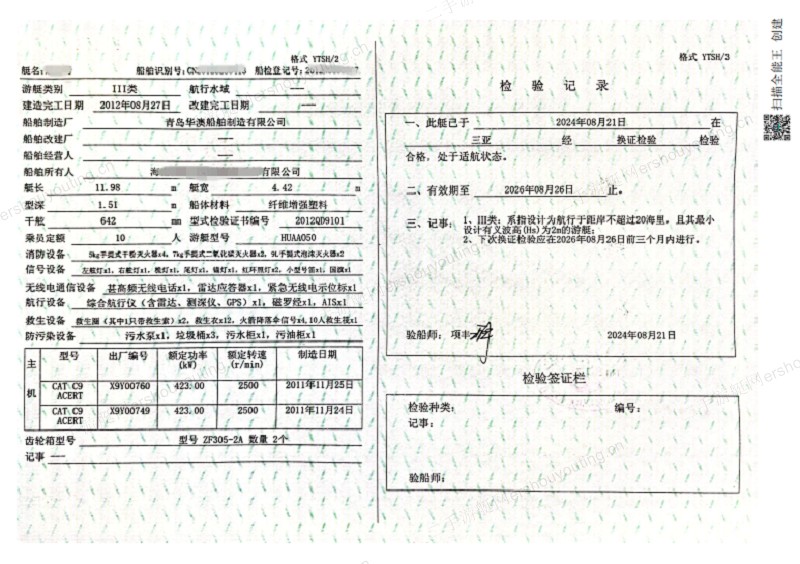 格式 YTSH/2
艇名:
船舶识别号:CN
船检登记号:2012
游艇类别 III类 航行水域 ——
建造完工日期 2012年08月27日 改建完工日期 ——
船舶制造厂 青岛华澳船舶制造有限公司
船舶改建厂 ——
船舶经营人 ——
船舶所有人 海 有限公司
艇长 11.98 m 艇宽 4.42 m
型深 1.51 m 船体材料 纤维增强塑料
干舷 642 mm 型式检验证书编号 2012QD9101
乘员定额 10 人 游艇型号 HUAA050
消防设备 5kg手提式干粉灭火器x4, 7kg手提式二氧化碳灭火器x2, 9L手提式泡沫灭火器x2
信号设备 左舷灯x1, 右舷灯x1, 桅灯x1, 尾灯x1, 锚灯x1, 红环照灯x2, 小型号笛x1, 国旗x1
无线电通信设备 甚高频无线电话x1, 雷达应答器x1, 紧急无线电示位标x1
航行设备 综合航行仪(含雷达、测深仪、GPS)x1, 磁罗经x1, AISx1
救生设备 救生圈(其中1只带救生索)x2, 救生衣x12, 火箭降落伞信号x4, 10人救生筏x1
防污染设备 污水泵x1, 垃圾桶x3, 污水柜x1, 污油柜x1
主机 型号 出厂编号 额定功率(kW) 额定转速(r/min) 制造日期
CAT C9 ACERT X9Y00760 423.00 2500 2011年11月25日
CAT C9 ACERT X9Y00749 423.00 2500 2011年11月24日
齿轮箱型号 型号 ZF305-2A 数量 2个
记事 ——
格式 YTSH/3
检验记录
一、此艇已于 2024年08月21日 在
三亚 经 换证检验 检验
合格，处于适航状态。
二、有效期至 2026年08月26日 止。
三、记事: 1、III类: 系指设计为航行于距岸不超过20海里，且其最小
设计有义波高(Hs)为2m的游艇;
2、下次换证检验应在2026年08月26日前三个月内进行。
验船师: 项丰 2024年08月21日
检验签证栏
检验种类: 编号:
记事:
验船师:
扫描全能王 创建